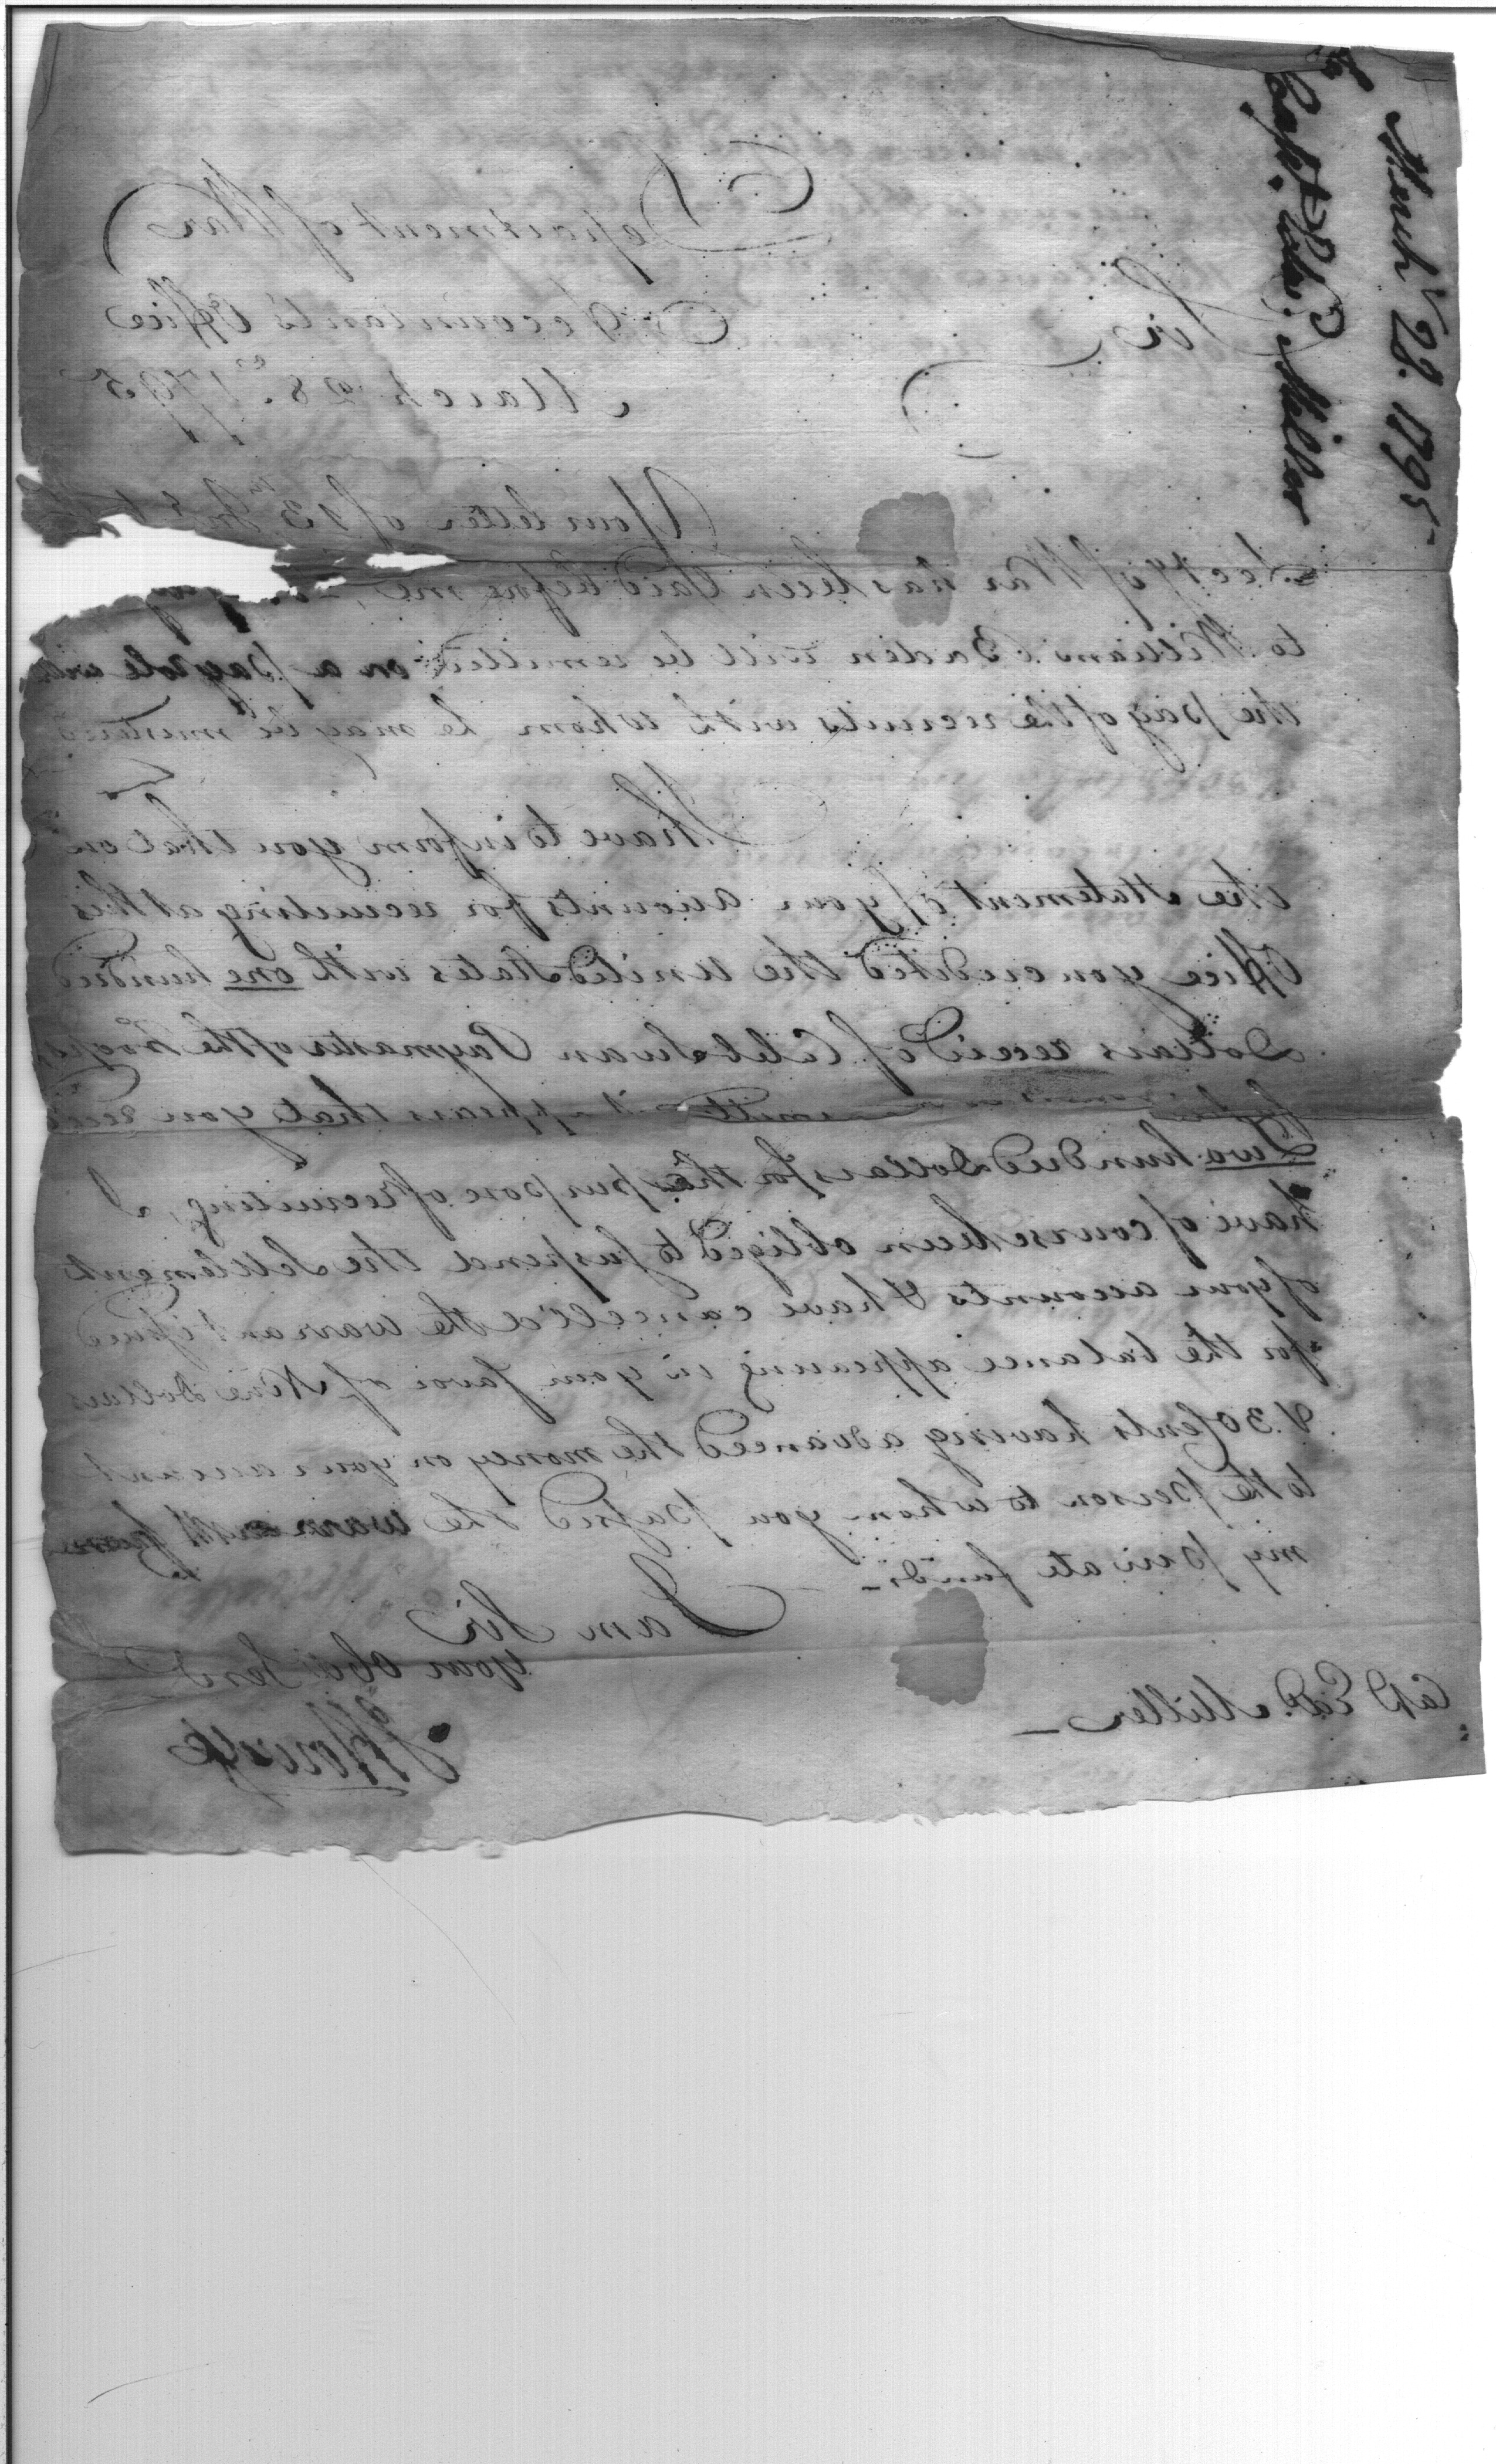 March 28. 1795
To
Capt. Edwd. Miller
Department of War
Accountants Office
March 28th. 1795
Sir
Your letter of 13th to the
Secty of War has been laid before me, pay
to William Baden will be remitted on a payrole with
the pay of the recruits with whom he may be mustered
I have to inform you that on
the statement of your accounts for recruiting at this
Office you credited the United States with one hundred
Dollars receied of Caleb Swan Paymaster of the troops,
it appears that you recd
Two hundred Dollars for the purpose of recruiting, I
have of course been obliged to suspend the Settlement
of your accounts & have cancelled the warrant issued
for the balance appearing in your favor of Nine Dollars
& 30 Cents having advanced the money on your account
to the person to whom you passed the warrant from
my private funds
I am Sir
your Obd Servt
J Howell
Cap Ed. Miller